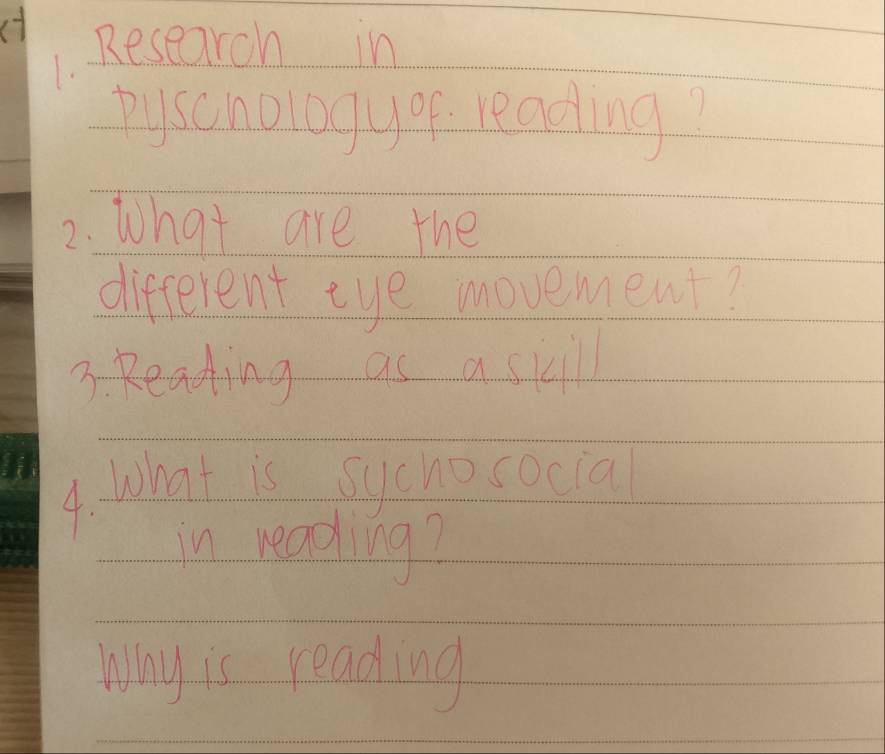 1. Research in
pyschology of. reading?
2. What are the
different eye movement?
3. Reading as a skill
4. What is sychosocial
in reading?
Why is reading